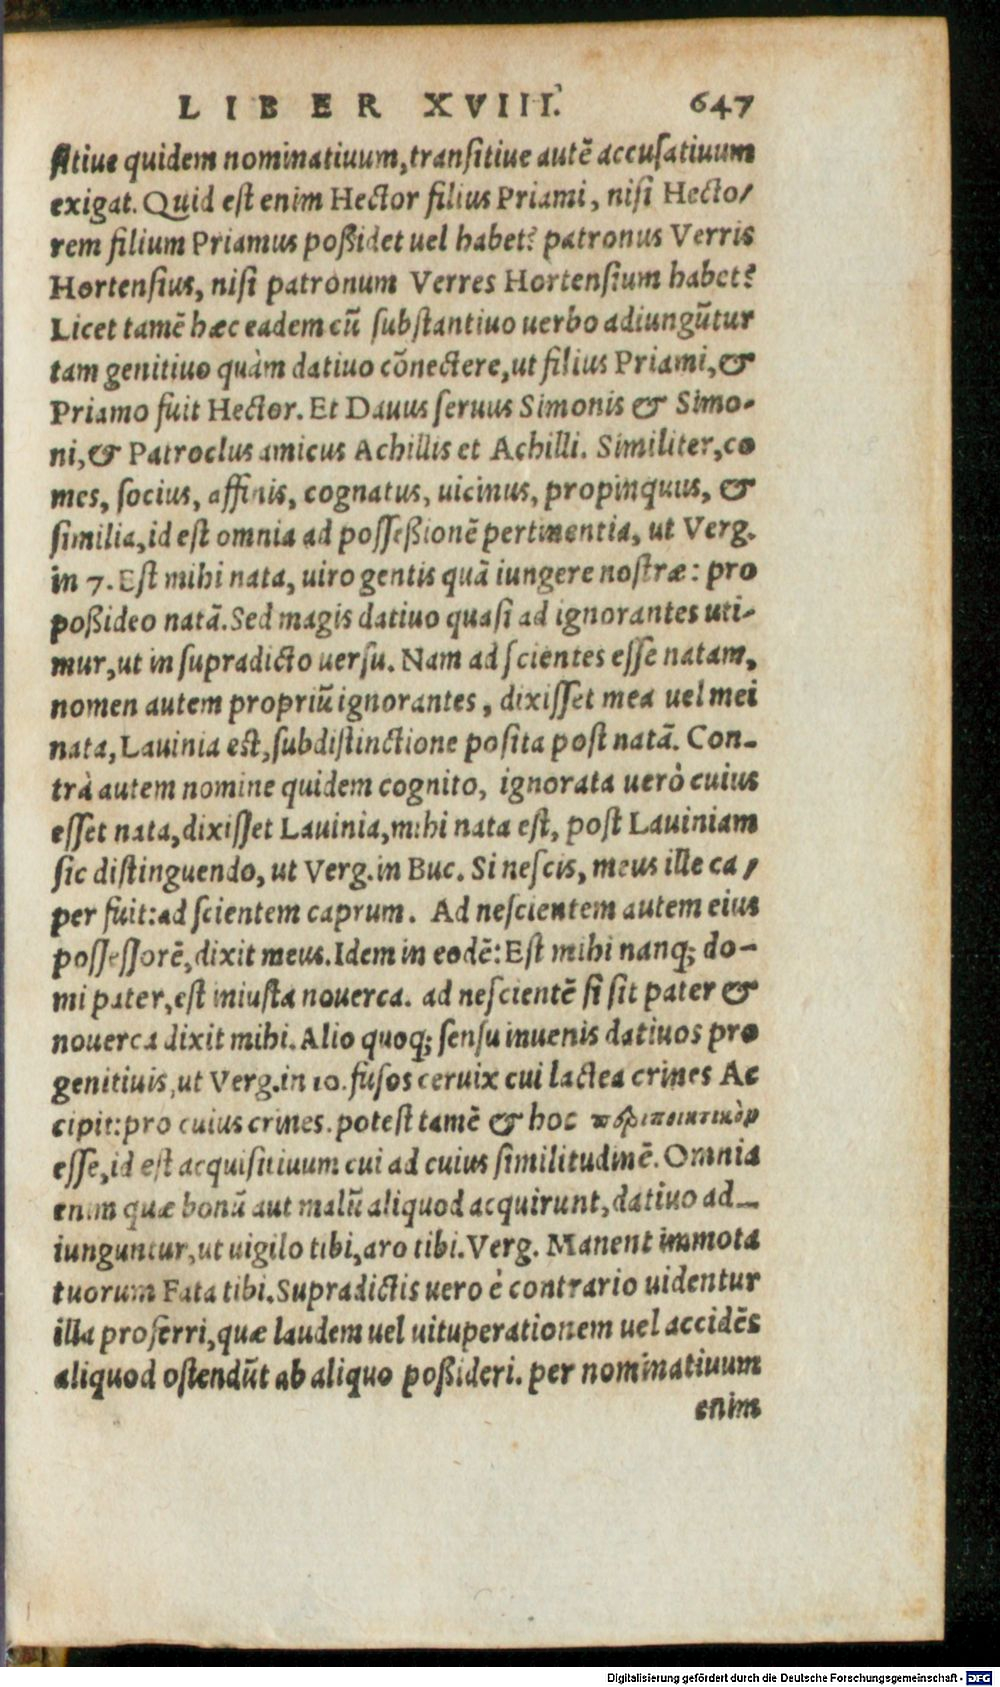 LIBER XVIII. 647
sitiue quidem nominatiuum, transitiue autē accusatiuum
exigat. Quid est enim Hector filius Priami, nisi Hecto/
rem filium Priamus possidet uel habet? patronus Verris
Hortensius, nisi patronum Verres Hortensium habet?
Licet tamē hæc eadem cū substantiuo uerbo adiungūtur
tam genitiuo quàm datiuo cōnectere, ut filius Priami, &
Priamo fuit Hector. Et Dauus seruus Simonis & Simo-
ni, & Patroclus amicus Achillis et Achilli. Similiter, co
mes, socius, affinis, cognatus, uicinus, propinquus, &
similia, id est omnia ad possessionē pertinentia, ut Verg.
in 7. Est mihi nata, uiro gentis quā iungere nostræ: pro
possideo natā. Sed magis datiuo quasi ad ignorantes uti-
mur, ut in supradicto uersu. Nam ad scientes esse natam,
nomen autem propriū ignorantes, dixisset mea uel mei
nata, Lauinia est, subdistinctione posita post natā. Con-
trà autem nomine quidem cognito, ignorata uerò cuius
esset nata, dixisset Lauinia, mihi nata est, post Lauiniam
sic distinguendo, ut Verg. in Buc. Si nescis, meus ille ca/
per fuit: ad scientem caprum. Ad nescientem autem eius
possessorē, dixit meus. Idem in eodē: Est mihi nanq; do-
mi pater, est iniusta nouerca. ad nescientē si sit pater &
nouerca dixit mihi. Alio quoq; sensu inuenis datiuos pro
genitiuis, ut Verg. in 10. fusos ceruix cui lactea crines Ac
cipit: pro cuius crines. potest tamē & hoc περιποιητικὸν
esse, id est acquisitiuum cui ad cuius similitudinē. Omnia
enim quæ bonū aut malū aliquod acquirunt, datiuo ad-
iunguntur, ut uigilo tibi, aro tibi. Verg. Manent immota
tuorum Fata tibi. Supradictis uero è contrario uidentur
illa proferri, quæ laudem uel uituperationem uel accidēs
aliquod ostendūt ab aliquo possideri. per nominatiuum
enim
Digitalisierung gefördert durch die Deutsche Forschungsgemeinschaft - DFG